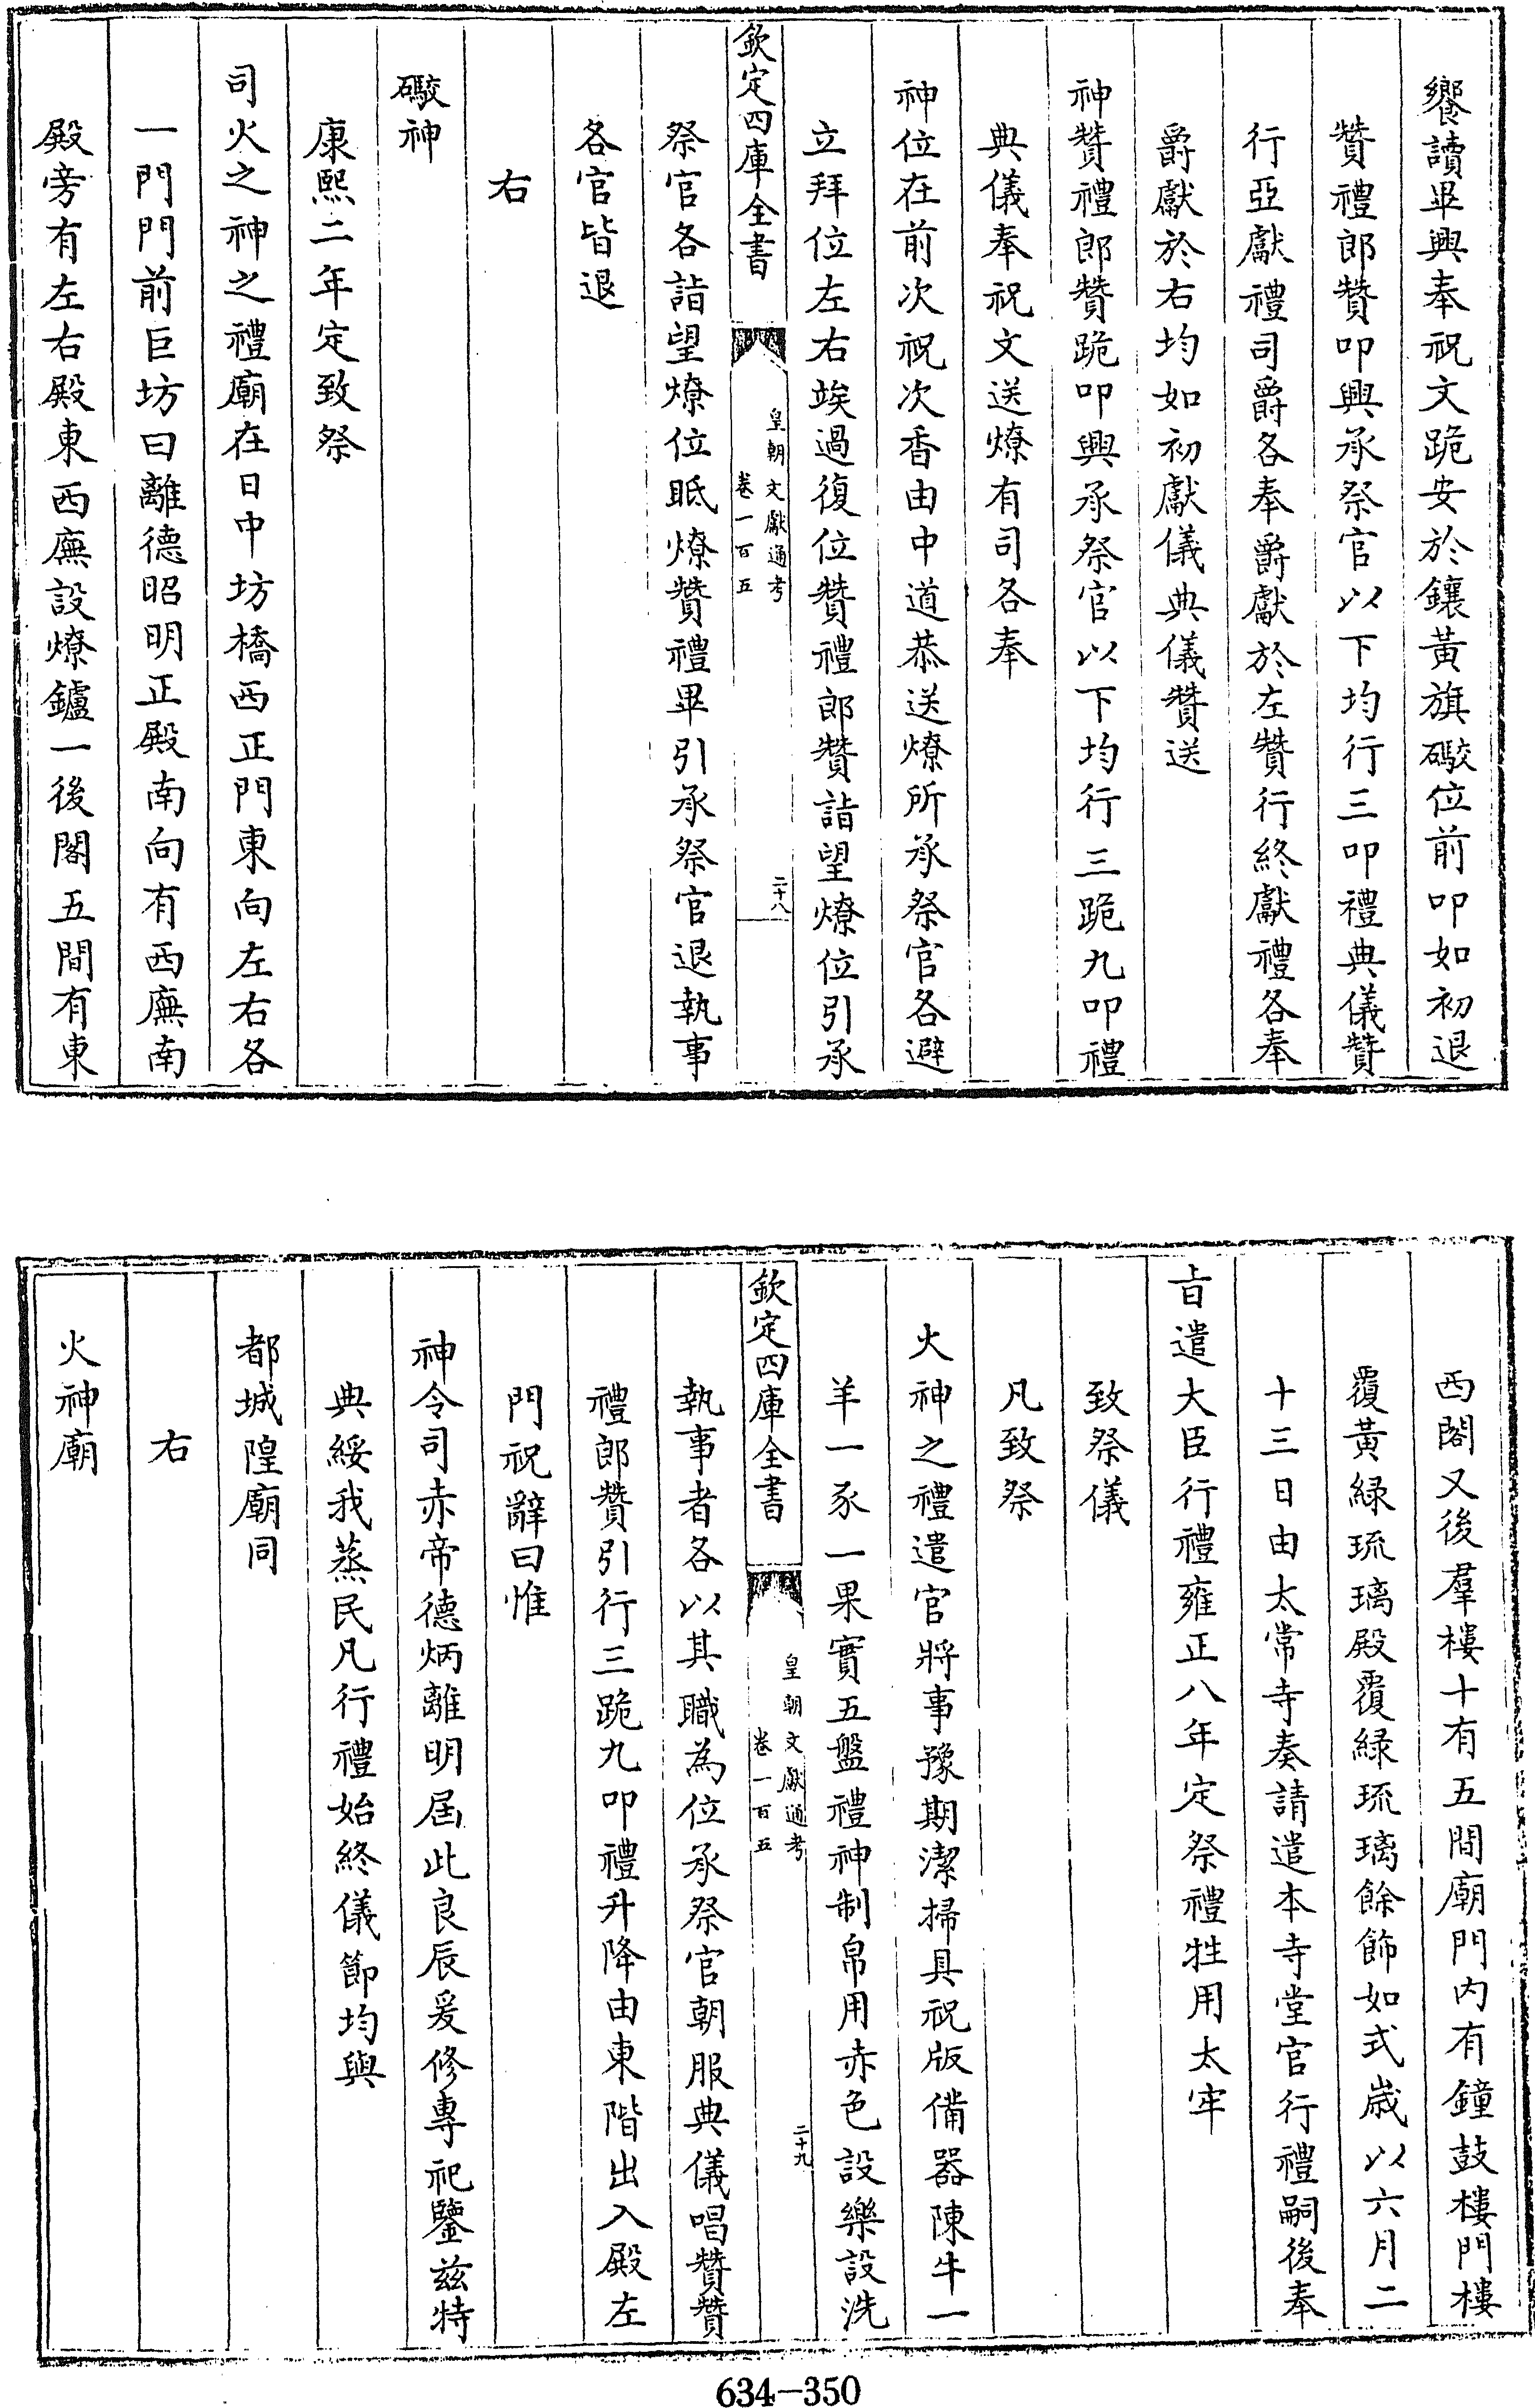 饗讀畢興奉祝文跪安於鑲黃旗礮位前叩如初退
贊禮郎贊叩興承祭官以下均行三叩禮典儀贊
行亞獻禮司爵各奉爵獻於左贊行終獻禮各奉
爵獻於右均如初獻儀典儀贊送
神贊禮郎贊跪叩興承祭官以下均行三跪九叩禮
典儀奉祝文送燎有司各奉
神位在前次祝次香由中道恭送燎所承祭官各避
立拜位左右竢過復位贊禮郎贊詣望燎位引承
欽定四庫全書
皇朝文獻通考
卷一百五
二十八
祭官各詣望燎位眡燎贊禮畢引承祭官退執事
各官皆退
右
礮神
康熙二年定致祭
司火之神之禮廟在日中坊橋西正門東向左右各
一門門前巨坊曰離德昭明正殿南向有西廡南
殿旁有左右殿東西廡設燎鑪一後閣五間有東
西閣又後羣樓十有五間廟門內有鐘鼓樓門樓
覆黃綠琉璃殿覆綠琉璃餘飾如式歲以六月二
十三日由太常寺奏請遣本寺堂官行禮嗣後奉
旨遣大臣行禮雍正八年定祭禮牲用太牢
致祭儀
凡致祭
火神之禮遣官將事豫期潔掃具祝版備器陳牛一
羊一豕一果實五盤禮神制帛用赤色設樂設洗
欽定四庫全書
皇朝文獻通考
卷一百五
二十九
執事者各以其職為位承祭官朝服典儀唱贊贊
禮郎贊引行三跪九叩禮升降由東階出入殿左
門祝辭曰惟
神令司赤帝德炳離明屆此良辰爰修專祀鑒茲特
典綏我蒸民凡行禮始終儀節均與
都城隍廟同
右
火神廟
634-350